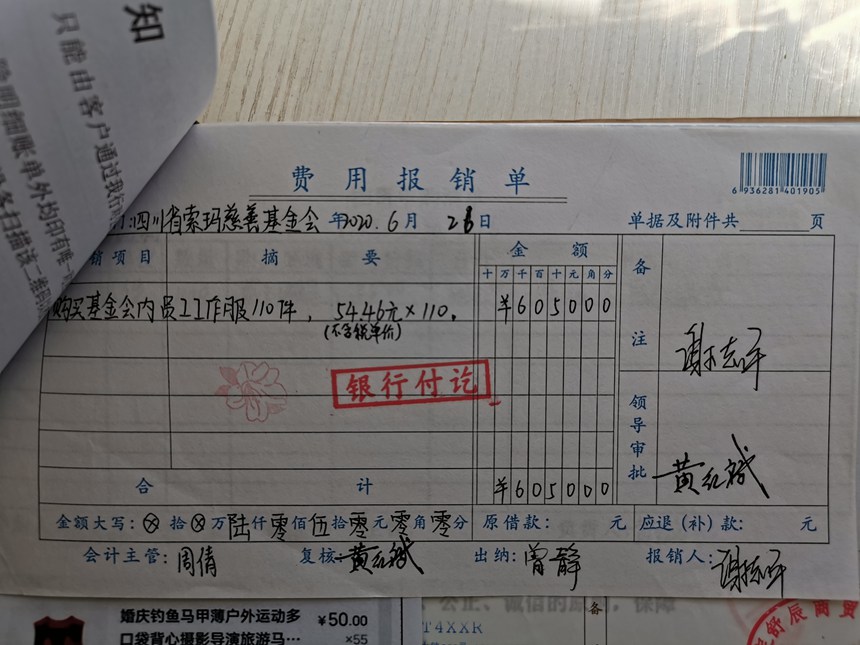 知
只能由客户通过我行
明细账单外均印有唯一
扫描该二维码
费用报销单
6 936281 401905
四川省索玛慈善基金会 年2020.6月 28日 单据及附件共 页
销项目 摘要 金额 备注
十万千百十元角分
购买基金会内员工工作服110件, 54.46元×110。 ¥605000
(不含税单价)
谢志平
银行付讫
领导审批 黄红斌
合计 ¥605000
金额大写:⊗拾⊗万陆仟零佰伍拾零元零角零分 原借款: 元 应退(补)款: 元
会计主管:周倩 复核:黄红斌 出纳:曾静 报销人:
婚庆钓鱼马甲薄户外运动多 ¥50.00
口袋背心摄影导演旅游马… ×55
公正、诚信的原则,保障
T4XXR
备
舒辰商贸